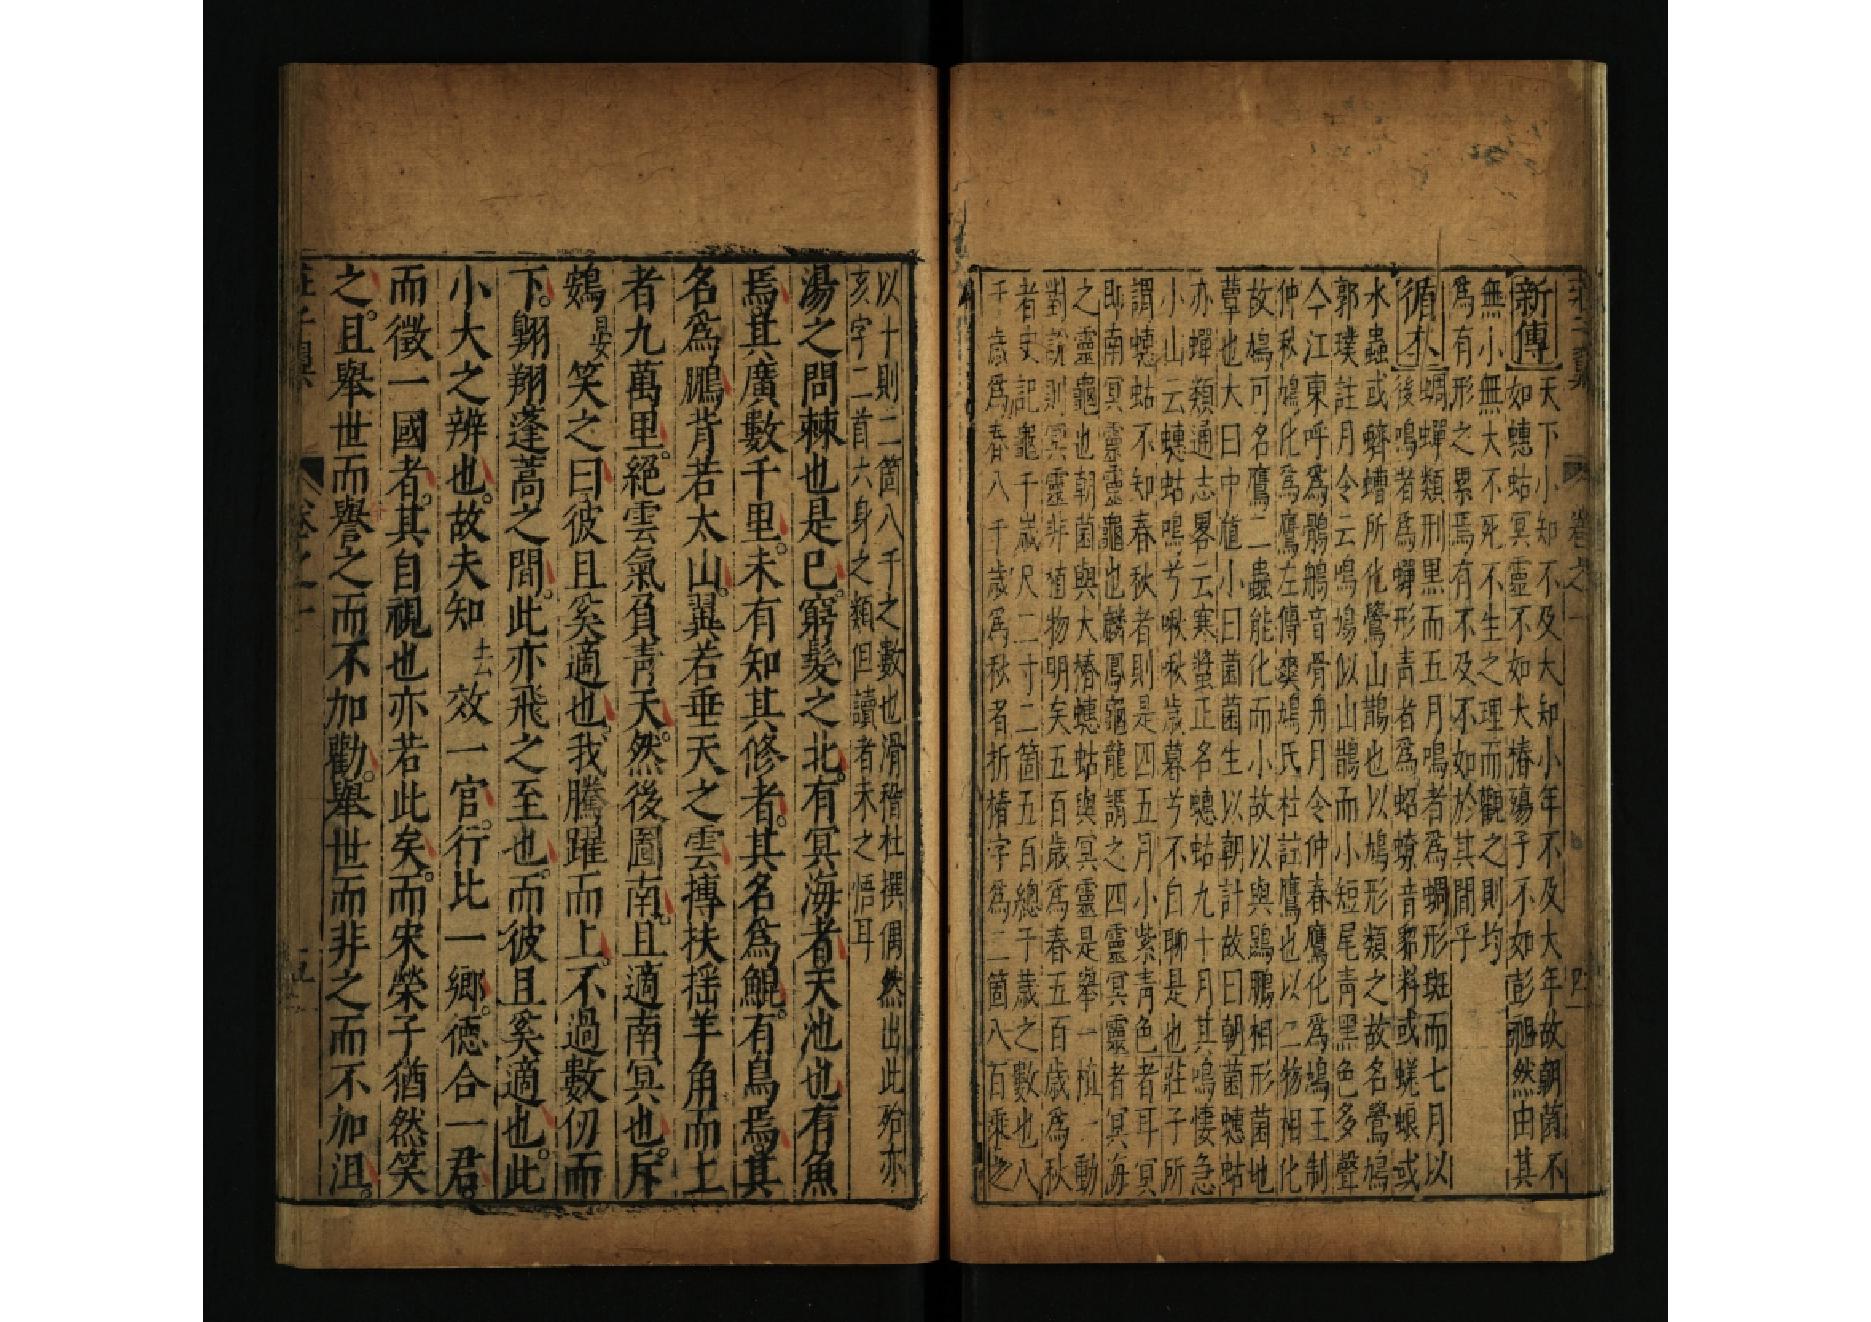 新傳
天下小知不及大知小年不及大年故朝菌不
如蟪蛄冥靈不如大椿殤子不如彭祖然由其
無小無大不死不生之理而觀之則均
爲有形之累焉有不及不如於其間乎
循本
蜩蟬類形黑而五月鳴者爲蜩形斑而七月以
後鳴者爲蟬形青者爲蛁蟟音貂料或蜣蜋或
水蟲或蠐螬所化鷽山鵲也以鳩形類之故名鷽鳩
郭璞註月令云鳴鳩似山鵲而小短尾青黑色多聲
今江東呼爲鶻鵃音骨舟月令仲春鷹化爲鳩王制
仲秋鳩化爲鷹左傳爽鳩氏杜註鷹也以二物相化
故鳩可名鷹二蟲能化而小故以與鵾鵬相形菌地
蕈也大曰中馗小曰菌菌生以朝計故曰朝菌蟪蛄
亦蟬類通志畧云寒螿正名蟪蛄九十月其鳴悽急
小山云蟪蛄鳴兮啾啾歲暮兮不自聊是也莊子所
謂蟪蛄不知春秋者則是四五月小紫青色者耳冥
卽南冥靈靈龜也麟鳳龜龍謂之四靈冥靈者冥海
之靈龜也朝菌與大椿蟪蛄與冥靈是舉一植一動
對說則冥靈非植物明矣五百歲爲春五百歲爲秋
者史記龜千歲尺二寸二箇五百總千歲之數也八
千歲爲春八千歲爲秋者折椿字爲二箇八百乘之
以十則二箇八千之數也滑稽杜撰偶然出此殆亦
亥字二首六身之類但讀者未之悟耳
湯之問棘也是已窮髮之北有冥海者天池也有魚
焉其廣數千里未有知其修者其名爲鯤有鳥焉其
名爲鵬背若太山翼若垂天之雲摶扶搖羊角而上
者九萬里絕雲氣負青天然後圖南且適南冥也斥
鷃晏笑之曰彼且奚適也我騰躍而上不過數仞而
下翺翔蓬蒿之間此亦飛之至也而彼且奚適也此
小大之辨也故夫知去效一官行比一鄉德合一君
而徵一國者其自視也亦若此矣而宋榮子猶然笑
之且舉世而譽之而不加勸舉世而非之而不加沮
卷之一
五